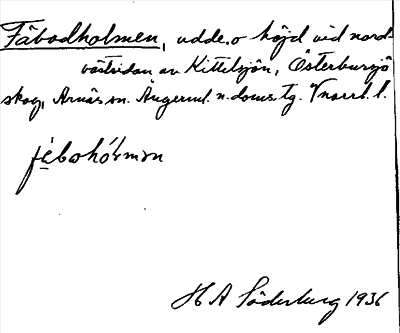 Fäbodholmen, udde o höjd vid nord-
västsidan av Kittelsjön, Österbursjö
skog, Arnäs sn. Ångerml. n. doms. tg. Vnorrl. l.
fèbohólmon
H A Söderberg 1936